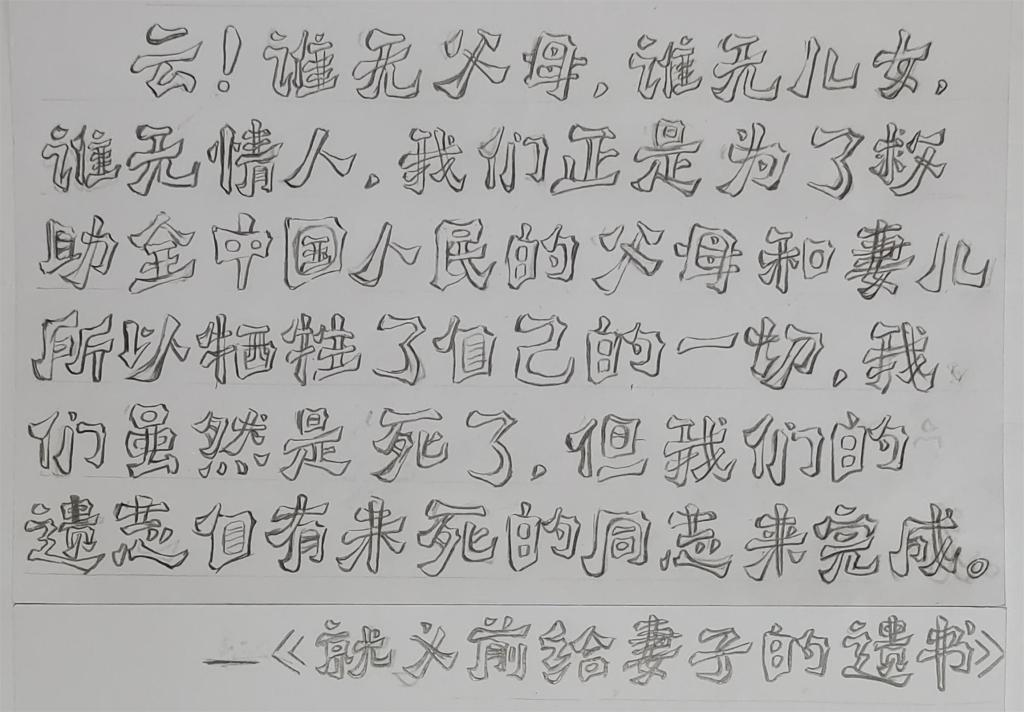 云！谁无父母，谁无儿女，
谁无情人，我们正是为了救
助全中国人民的父母和妻儿
所以牺牲了自己的一切，我
们虽然是死了，但我们的
遗志自有未死的同志来完成。
—《就义前给妻子的遗书》